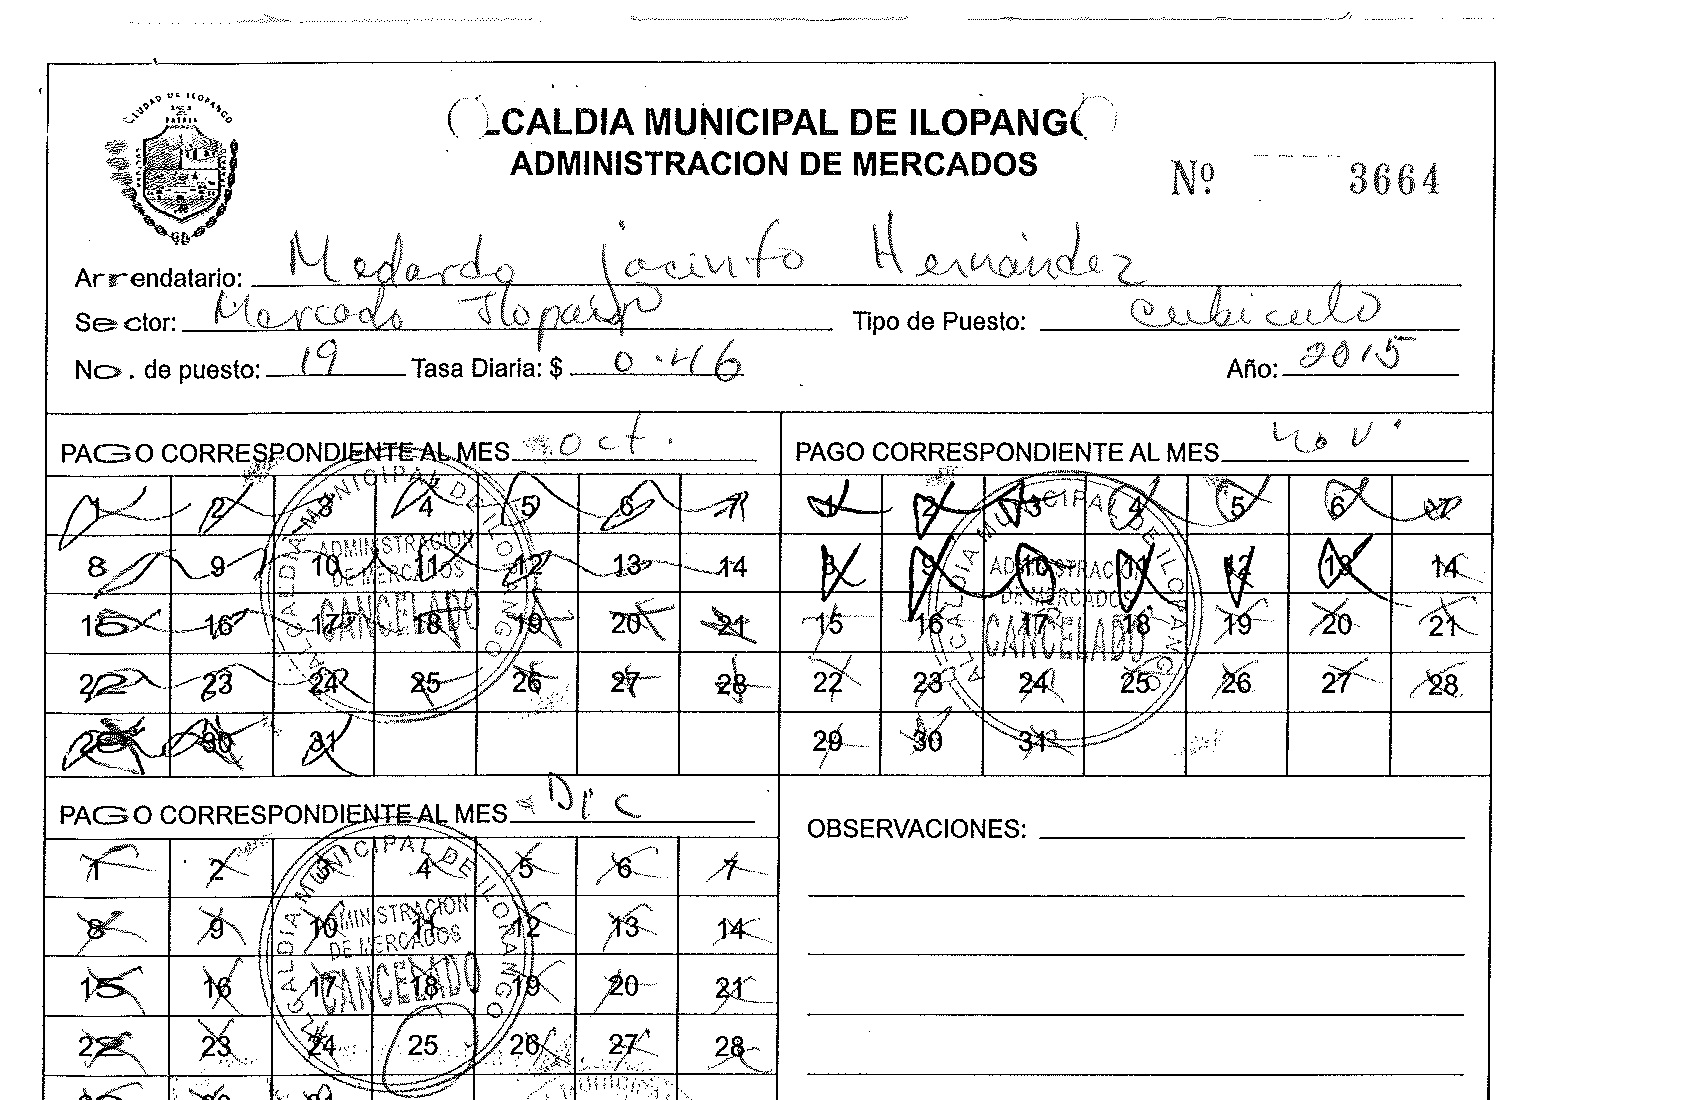 CIUDAD DE ILOPANGO
LCALDIA MUNICIPAL DE ILOPANGO
ADMINISTRACION DE MERCADOS
Nº 3664
Arrendatario: Medardo Jacinto Hernández
Sector: Mercado Ilopango Tipo de Puesto: Cubiculo
No. de puesto: 19 Tasa Diaria: $ 0.46 Año: 2015
PAGO CORRESPONDIENTE AL MES oct.
1 2 3 4 5 6 7
8 9 10 11 12 13 14
15 16 17 18 19 20 21
22 23 24 25 26 27 28
29 30 31
ALCALDIA MUNICIPAL DE ILOPANGO
ADMINISTRACION
DE MERCADOS
CANCELADO
PAGO CORRESPONDIENTE AL MES Nov.
1 2 3 4 5 6 7
8 9 10 11 12 13 14
15 16 17 18 19 20 21
22 23 24 25 26 27 28
29 30 31
ALCALDIA MUNICIPAL DE ILOPANGO
ADMINISTRACION
DE MERCADOS
CANCELADO
PAGO CORRESPONDIENTE AL MES Dic
1 2 3 4 5 6 7
8 9 10 11 12 13 14
15 16 17 18 19 20 21
22 23 24 25 26 27 28
ALCALDIA MUNICIPAL DE ILOPANGO
ADMINISTRACION
DE MERCADOS
CANCELADO
OBSERVACIONES: